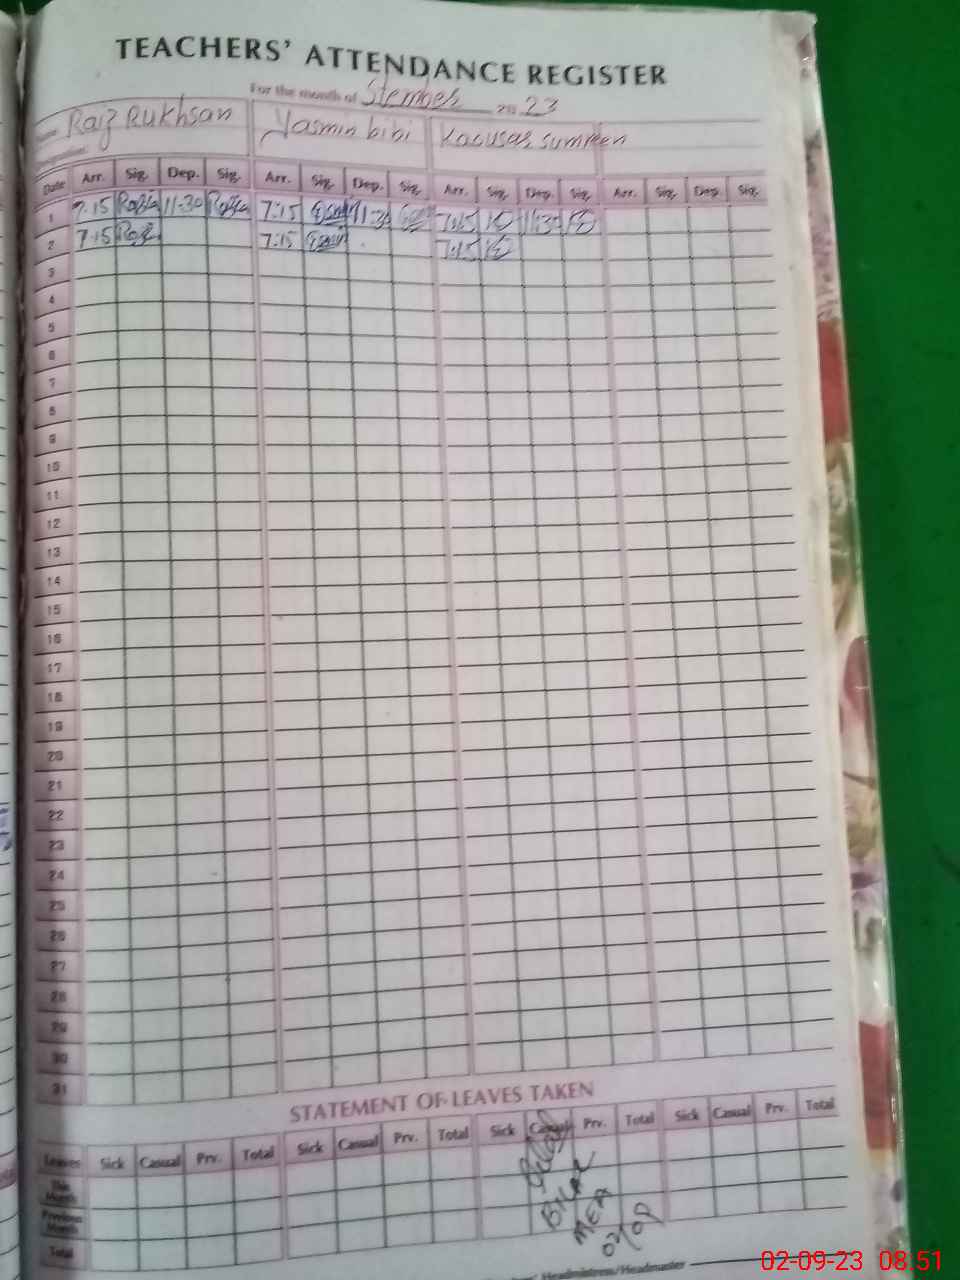 TEACHERS' ATTENDANCE REGISTER
For the month of Stember 2023
Name Raiz Rukhsan Yasmin bibi Kaousar sumreen
Designation
Date Arr. Sig. Dep. Sig. Arr. Sig. Dep. Sig. Arr. Sig. Dep. Sig. Arr. Sig. Dep. Sig.
1 7:15 11:30 7:15 11:30 7:15 11:30
2 7:15 7:15 7:15
3
4
5
6
7
8
9
10
11
12
13
14
15
16
17
18
19
20
21
22
23
24
25
26
27
28
29
30
31
STATEMENT OF LEAVES TAKEN
Leaves Sick Casual Prv. Total Sick Casual Prv. Total Sick Casual Prv. Total Sick Casual Prv. Total
This Month
Previous Month
Total
BILAL
MEA
02/09
Headmistress/Headmaster
02-09-23 08.51